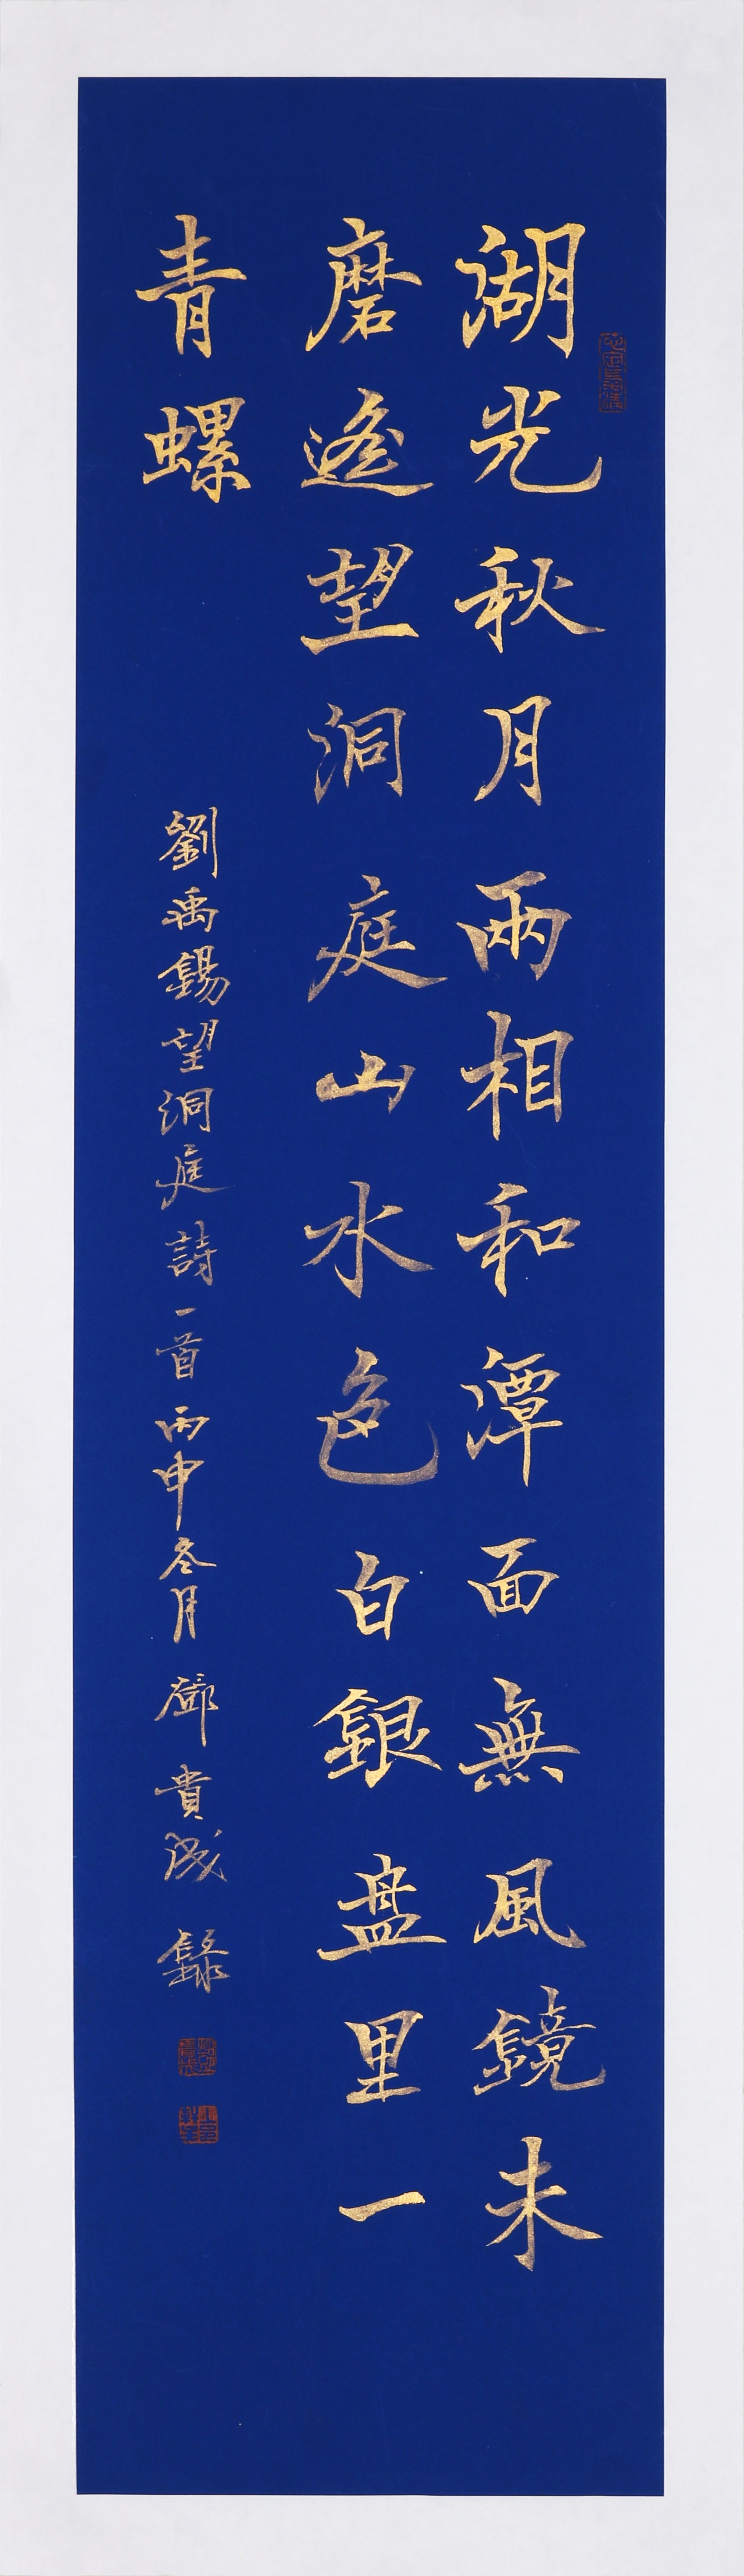 湖光秋月兩相和潭面無風鏡未
磨遙望洞庭山水色白銀盘里一
青螺
劉禹錫望洞庭詩一首丙申冬月鄧貴成録